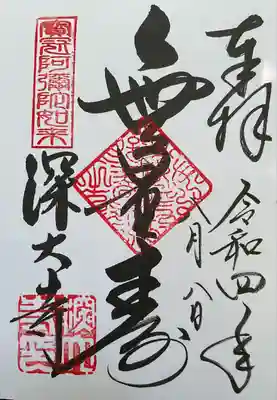 奉拝
令和四年
八月八日
無量寿
寳冠阿彌陀如来
深大寺